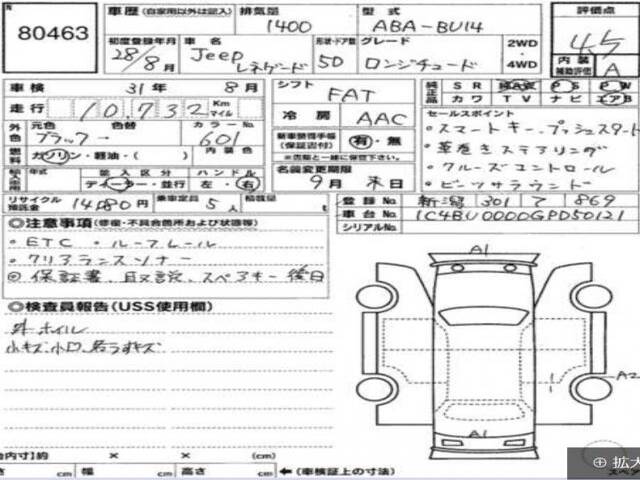 N
80463
車歴 (自家用以外は記入) 排気量 型式 評価点
1400 ABA-BU14
初度登録年月 車名 形状・ドア数 グレード 2WD・4WD
28/8月 Jeep レネゲード 5D ロンジチュード
4.5
内装補助評価 A
車検 31年 8月 シフト FAT
走行 10,732 Km マイル 冷房 AAC
純正品 SR 純AW PS PW
カワ TV ナビ エアB
外色 元色 色替 カラーNo.
ブラック→ 601
燃料 ガソリン・軽油・( ) 内装色
乗車整備手帳(保証書付) 有・無
※出品と一緒に保管下さい。
セールスポイント
・スマートキー、プッシュスタート
・革巻きステアリング
・クルーズコントロール
・ビーツサラウンド
年式 輸入区分 ハンドル
ディーラー・並行 左・右
名義変更期限
9月 末日
リサイクル預託金 14,080円 乗車定員 5人 積載量
登録No. 新潟 301 て 869
車台No. 1C4BU0000GPD50121
シリアルNo.
◎注意事項 (修復・不具合箇所および状態等)
・ETC ・ルーフレール
・クリアランスソナー
◎保証書、取説、スペアキー後日
◎検査員報告(USS使用欄)
外ホイル
小キズ、小凹、各うすキズ
A1
A2
A1
内寸)約 × × (cm)
cm 幅 cm 高さ cm ←(車検証上の寸法)
スペア
⊕ 拡大